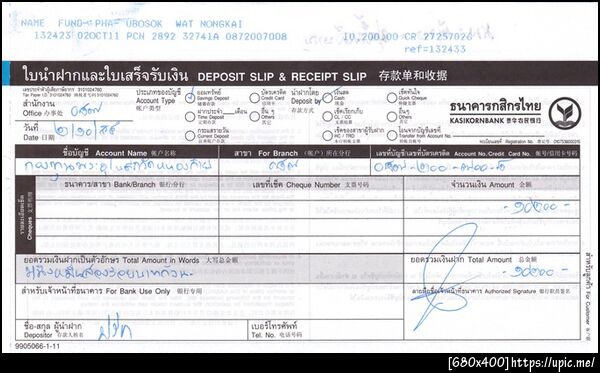 NAME FUND-PHA-UBOSOK WAT NONGKAI
132423 02OCT11 PCN 2892 32741A 0872007008 10,200.00 CR 27257026
ref=132433
ใบนำฝากและใบเสร็จรับเงิน DEPOSIT SLIP & RECEIPT SLIP 存款单和收据
เลขประจำตัวผู้เสียภาษีอากร 3101024760
Tax Payer I.D. 3101024760
สำนักงาน
Office 办事处
วันที่
Date 日期
ประเภทของบัญชี
Account Type
(帐户类别)
ออมทรัพย์
Savings Deposit
บัตรเครดิต
Credit Card
信用卡
ฝากประจำ........เดือน
Time Deposit
定期存款
อื่นๆ
Others
其它
กระแสรายวัน
Current Deposit
นำฝากโดย
Deposit by
存款方式
เงินสด
Cash
现金
เช็คเรียกเก็บ
เช็คของสาขาผู้รับฝาก
เช็คทันใจ
Quick Cheque
อื่นๆ
Others
其它
โอนจากบัญชีเลขที่
Transfer from Account No.
ธนาคารกสิกรไทย
KASIKORNBANK 泰华农民银行
ชื่อบัญชี Account Name 帐户名称
สาขา For Branch (帐户) 所属分行
เลขที่บัญชี/เลขที่บัตรเครดิต Account No./Credit Card No. 帐号/信用卡号码
ธนาคาร/สาขา Bank/Branch 银行/分行
เลขที่เช็ค Cheque Number 支票号码
จำนวนเงิน Amount 金额
รายละเอียดเช็ค
Cheques 支票
๑๐๒๐๐.-
ยอดรวมเงินฝากเป็นตัวอักษร Total Amount in Words 大写总金额
ยอดรวมเงินฝาก Total Amount 总金额
หนึ่งหมื่นสองร้อยบาทถ้วน
๑๐๒๐๐.-
สำหรับเจ้าหน้าที่ธนาคาร For Bank Use Only 银行专用
ลายมือชื่อเจ้าหน้าที่ธนาคาร Authorized Signature 银行职员签名
ชื่อ-สกุล ผู้นำฝาก
Depositor 存款人姓名
เบอร์โทรศัพท์
Tel. No. 电话号码
ส่วนที่ 2 สำหรับลูกค้า For Customer
9905066-1-11
[680x400]https://upic.me/